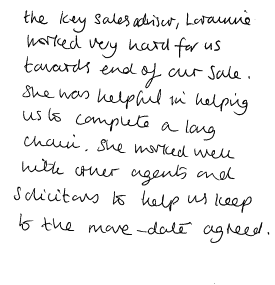 the key sales advisor, Loraınne
worked very hard for us
towards end of our sale.
She was helpful in helping
us to complete a long
chain. She worked well
with other agents and
solicitors to help us keep
to the move-date agreed.